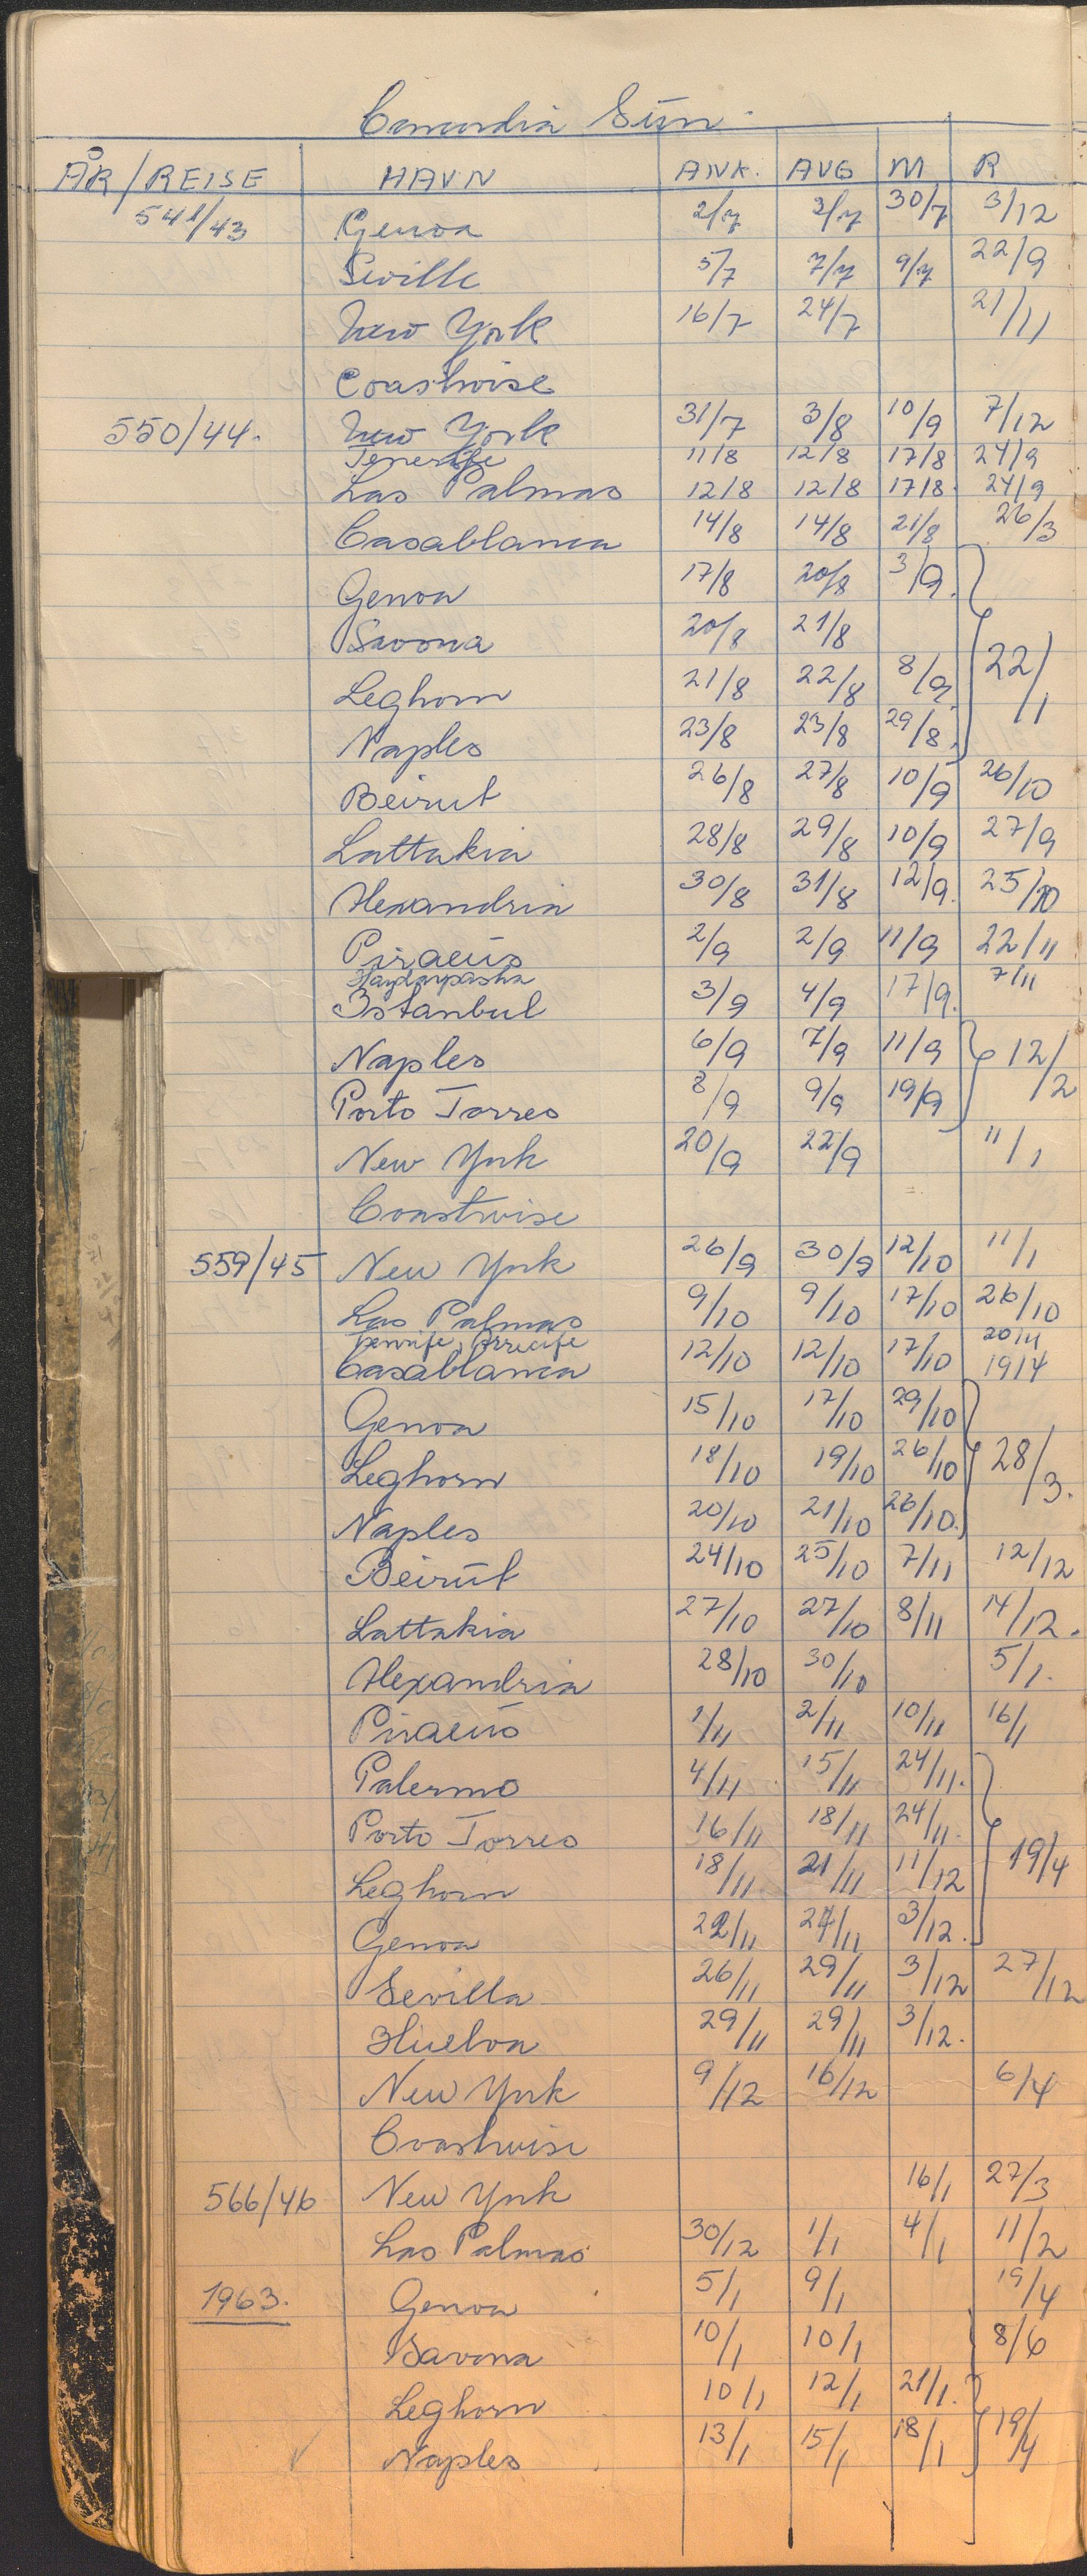 Concordia Sun.
ÅR/REISE HAVN ANK. AVG M R
541/43 Genoa 2/7 3/7 30/7 3/12
Seville 5/7 7/7 9/7 22/9
New York 16/7 24/7 21/11
Coastwise
550/44. New York 31/7 3/8 10/9 7/12
Tenerife 11/8 12/8 17/8 24/9
Las Palmas 12/8 12/8 17/8 24/9
Casablanca 14/8 14/8 21/8 26/3
Genoa 17/8 20/8 3/9.
Savona 20/8 21/8
Leghorn 21/8 22/8 8/9 22/1
Naples 23/8 23/8 29/8.
Beirut 26/8 27/8 10/9 26/10
Lattakia 28/8 29/8 10/9 27/9
Alexandria 30/8 31/8 12/9. 25/10
Piraeus 2/9 2/9 11/9 22/11
Haydarpasha 7/11
Istanbul 3/9 4/9 17/9.
Naples 6/9 7/9 11/9 12/2
Porto Torres 8/9 9/9 19/9
New York 20/9 22/9 11/1
Coastwise
559/45 New York 26/9 30/9 12/10 11/1
Las Palmas 9/10 9/10 17/10 26/10
Tenerife, Arrecife 20/11
Casablanca 12/10 12/10 17/10 19/4
Genoa 15/10 17/10 29/10
Leghorn 18/10 19/10 26/10 28/3.
Naples 20/10 21/10 26/10.
Beirut 24/10 25/10 7/11 12/12
Lattakia 27/10 27/10 8/11 14/12.
Alexandria 28/10 30/10 5/1.
Piraeus 1/11 2/11 10/11 16/1
Palermo 4/11 15/11 24/11.
Porto Torres 16/11 18/11 24/11.
Leghorn 18/11. 21/11 11/12 19/4
Genoa 22/11 24/11 3/12.
Sevilla 26/11 29/11 3/12 27/12
Huelva 29/11 29/11 3/12.
New York 9/12 16/12 6/4
Coastwise
566/46 New York 16/1 27/3
Las Palmas 30/12 1/1 4/1 11/2
1963. Genoa 5/1 9/1 19/4
Savona 10/1 10/1 8/6
Leghorn 10/1 12/1 21/1.
Naples 13/1 15/1 18/1 19/4